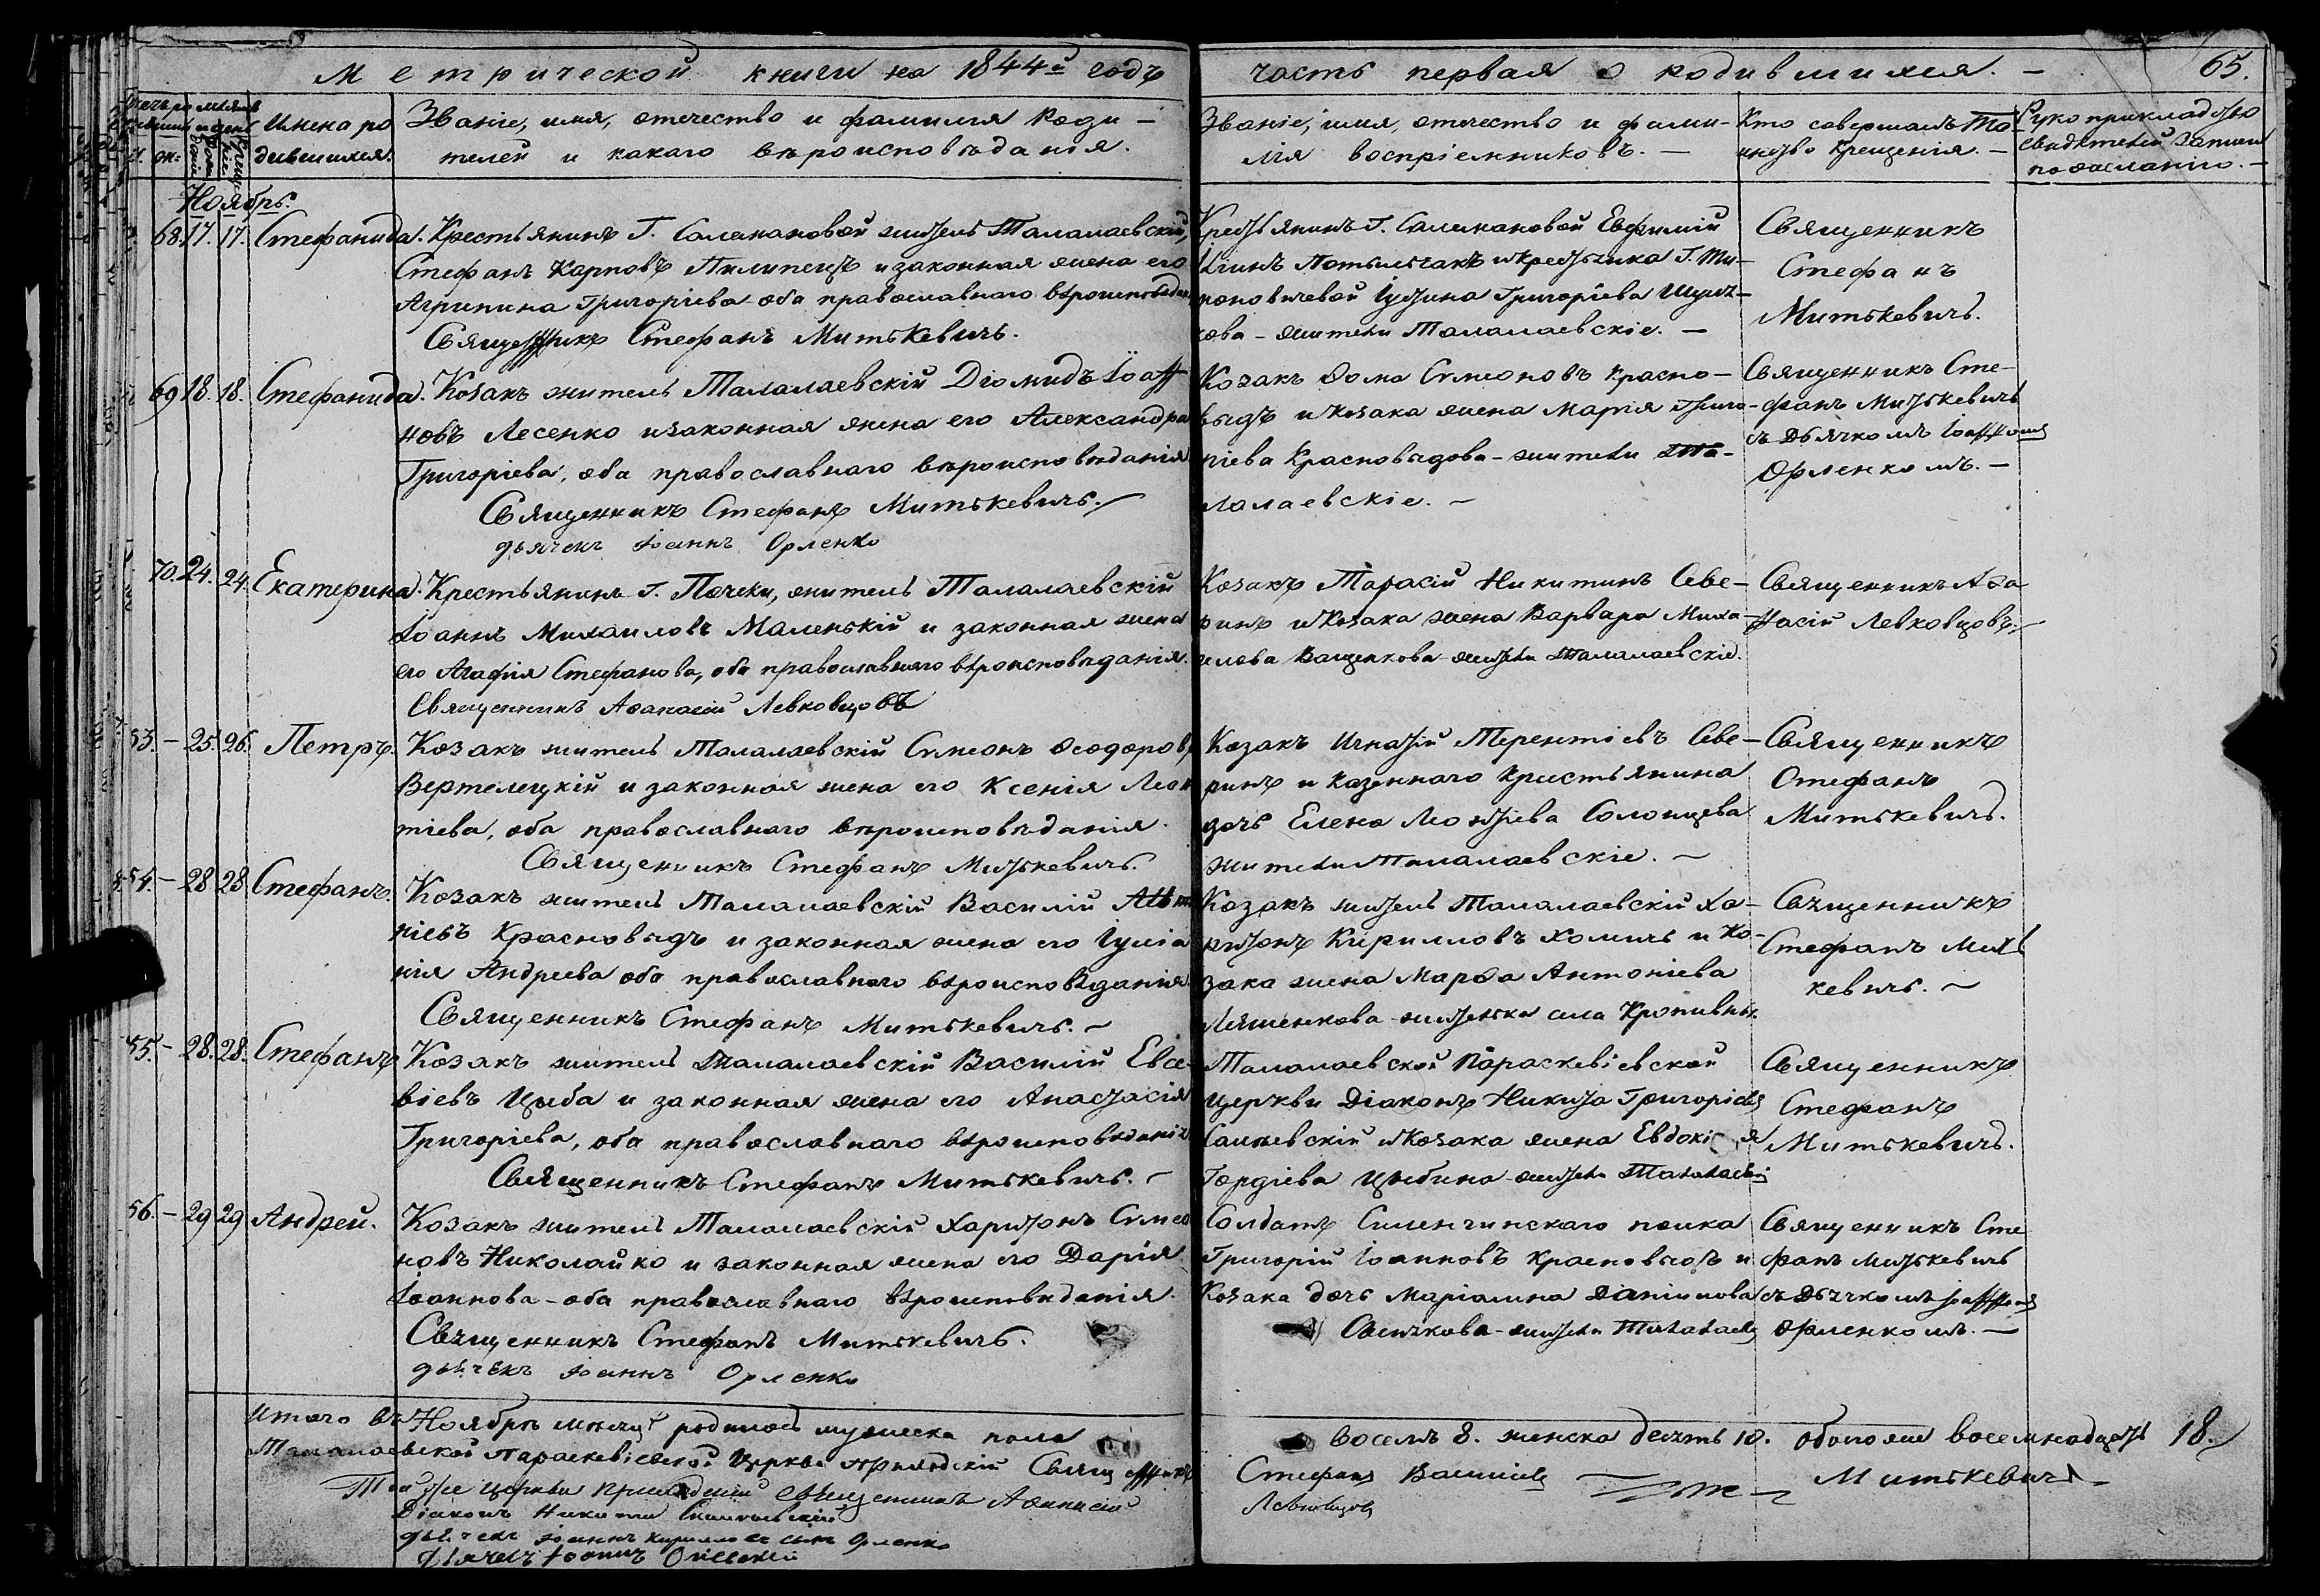 Метрической книги на 1844й годъ
часть первая о родившихся. 65.
Имена ро
дившихся.
Званіе, имя, отечество и фамилія Роди-
телей и какаго вѣроисповѣданія.
Званіе, имя, отечество и фами-
лія воспріемниковъ.
Кто совершалъ Та
инство Крещенія.
Рукоприкладство
свидѣтелей записи
по желанію.
Ноябрь.
68. 17. 17. Стефанида.
Крестьянинъ Г. Салимановой житель Талалаевскій,
Стефанъ Карповъ Пилипецъ и законная жена его
Агрипина Григоріева оба православнаго вѣроисповѣдан
Священникъ Стефанъ Митькевичъ.
Крестьянинъ Г. Салимановой Евфимій
и крестьянка Г. Ми-
роновичевой Іустина Григоріева
кова - жители Талалаевскіе.
Священникъ
Стефанъ
Митькевичъ.
69 18. 18. Стефанида.
Козакъ житель Талалаевскій Діомидъ Іоан
новъ Лесенко и законная жена его Александра
Григоріева, оба православнаго вѣроисповѣданія
Священникъ Стефанъ Митькевичъ.
дьячекъ Іоаннъ Орленко
Козакъ Ѳома Симеоновъ Красно-
выдъ и козака жена Марія Григо-
ріева Красновыдова - жители Та-
лалаевскіе.
Священникъ Сте-
фанъ Митькевичъ
съ Дьячкомъ Іоанномъ
Орленкомъ.
70. 24. 24. Екатерина.
Крестьянинъ Г. Почеки, житель Талалаевскій
Іоаннъ Михаиловъ Маленькій и законная жена
его Агафія Стефанова, оба православнаго вѣроисповѣданія.
Священникъ Аѳанасій Левковцовъ
Козакъ Тарасій Никитинъ Севе-
ринъ и Козака жена Варвара Миха-
илова Ващенкова жители Талалаевскіе.
Священникъ Аѳа
насій Левковцовъ.
53. - 25. 26. Петръ.
Козакъ житель Талалаевскій Симеонъ Ѳеодоровъ
Вертелецкій и законная жена его Ксенія Леон
тіева, оба православнаго вѣроисповѣданія.
Священникъ Стефанъ Митькевичъ.
Козакъ Игнатій Терентіевъ Севе-
ринъ и казеннаго крестьянина
дочь Елена Леонтіева Солонцева
жители Талалаевскіе.
Священникъ
Стефанъ
Митькевичъ.
54. - 28 28 Стефанъ.
Козакъ житель Талалаевскій Василій Анто
ніевъ Красновыдъ и законная жена его Іуліа
нія Андреева оба православнаго вѣроисповѣданія
Священникъ Стефанъ Митькевичъ.
Козакъ житель Талалаевскій Ха-
ритонъ Кирилловъ Хомичъ и ко-
зака жена Марѳа Антоніева
Ляшенкова - жителька села Кропивны.
Священникъ
Стефанъ Мить
кевичъ.
55. - 28. 28. Стефанъ
Козакъ житель Талалаевскій Василій Евсе-
віевъ Цыба и законная жена его Анастасія
Григоріева, оба православнаго вѣроисповѣданія
Священникъ Стефанъ Митькевичъ.
Талалаевской Параскевіевской
церкви Діаконъ Никита Григоріевъ
и Козака жена Евдокія
Гордіева Цыбина - жители Талалаев
Священникъ
Стефанъ
Митькевичъ.
56. - 29 29 Андрей.
Козакъ житель Талалаевскій Харитонъ Симео
новъ Николайко и законная жена его Дарія
Іоаннова - оба православнаго вѣроисповѣданія.
Священникъ Стефанъ Митькевичъ.
дьячекъ Іоаннъ Орленко
Солдатъ полка
Григорій Іоанновъ Красновыдъ и
Козака дочь Маріамна
жители Талалаев
Священникъ Сте
фанъ Митькевичъ
съ Дьячкомъ Іоанномъ
Орленкомъ.
Итого въ Ноябрѣ мѣсяцѣ родилось мужеска пола
восемь 8. женска десять 10. обоего же восемнадцать 18.
Талалаевской Параскевіевской Церкви приходскій Священникъ
Стефанъ Василіевъ Митькевичъ
Той же церкви приходскій священникъ Аѳанасій
Левковцовъ
Діаконъ Никита
дьячекъ Іоаннъ Кирилловъ сынъ Орленко
дьячекъ Іоаннъ